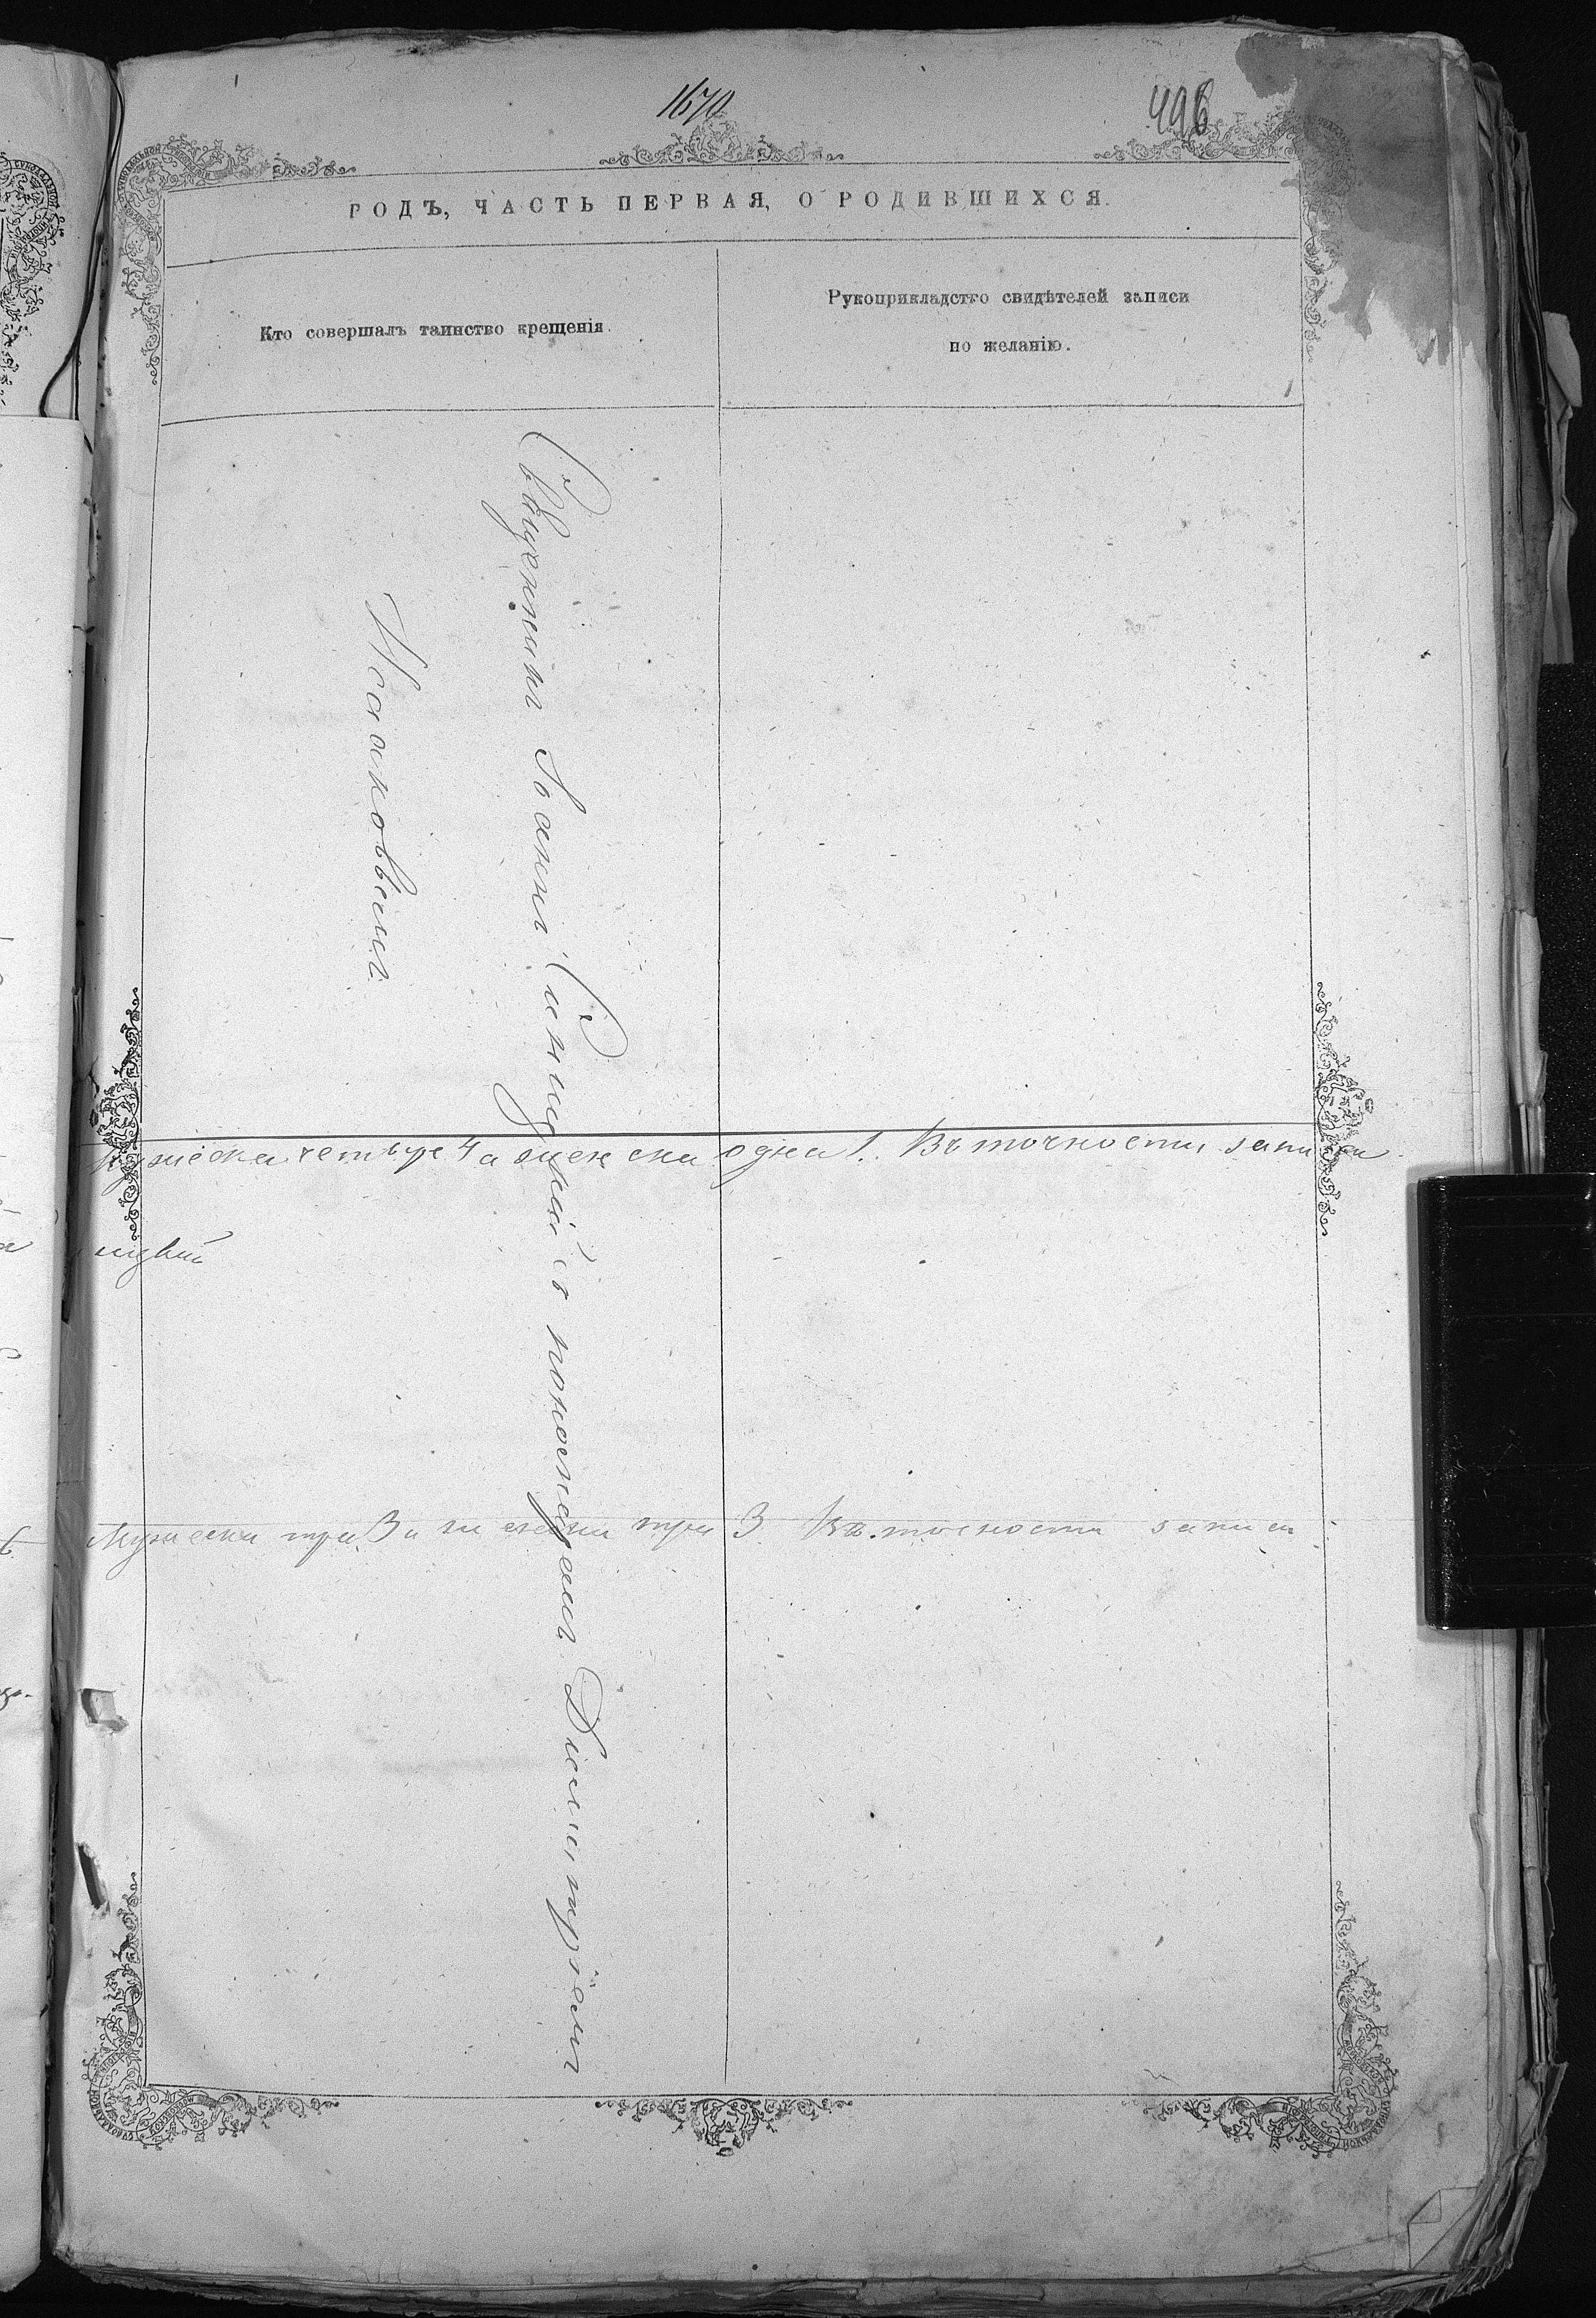 1670
496
ГОДЪ, ЧАСТЬ ПЕРВАЯ, О РОДИВШИХСЯ.
Кто совершалъ таинство крещенія.
Рукоприкладство свидѣтелей записи
по желанію.
Священник Іоанн с пономарем Димитріем
Исаковым
Мужеска четыре 4 а женска одна 1. Въ точности записи
Мужеска три 3 и женска три 3 Въ точности записи